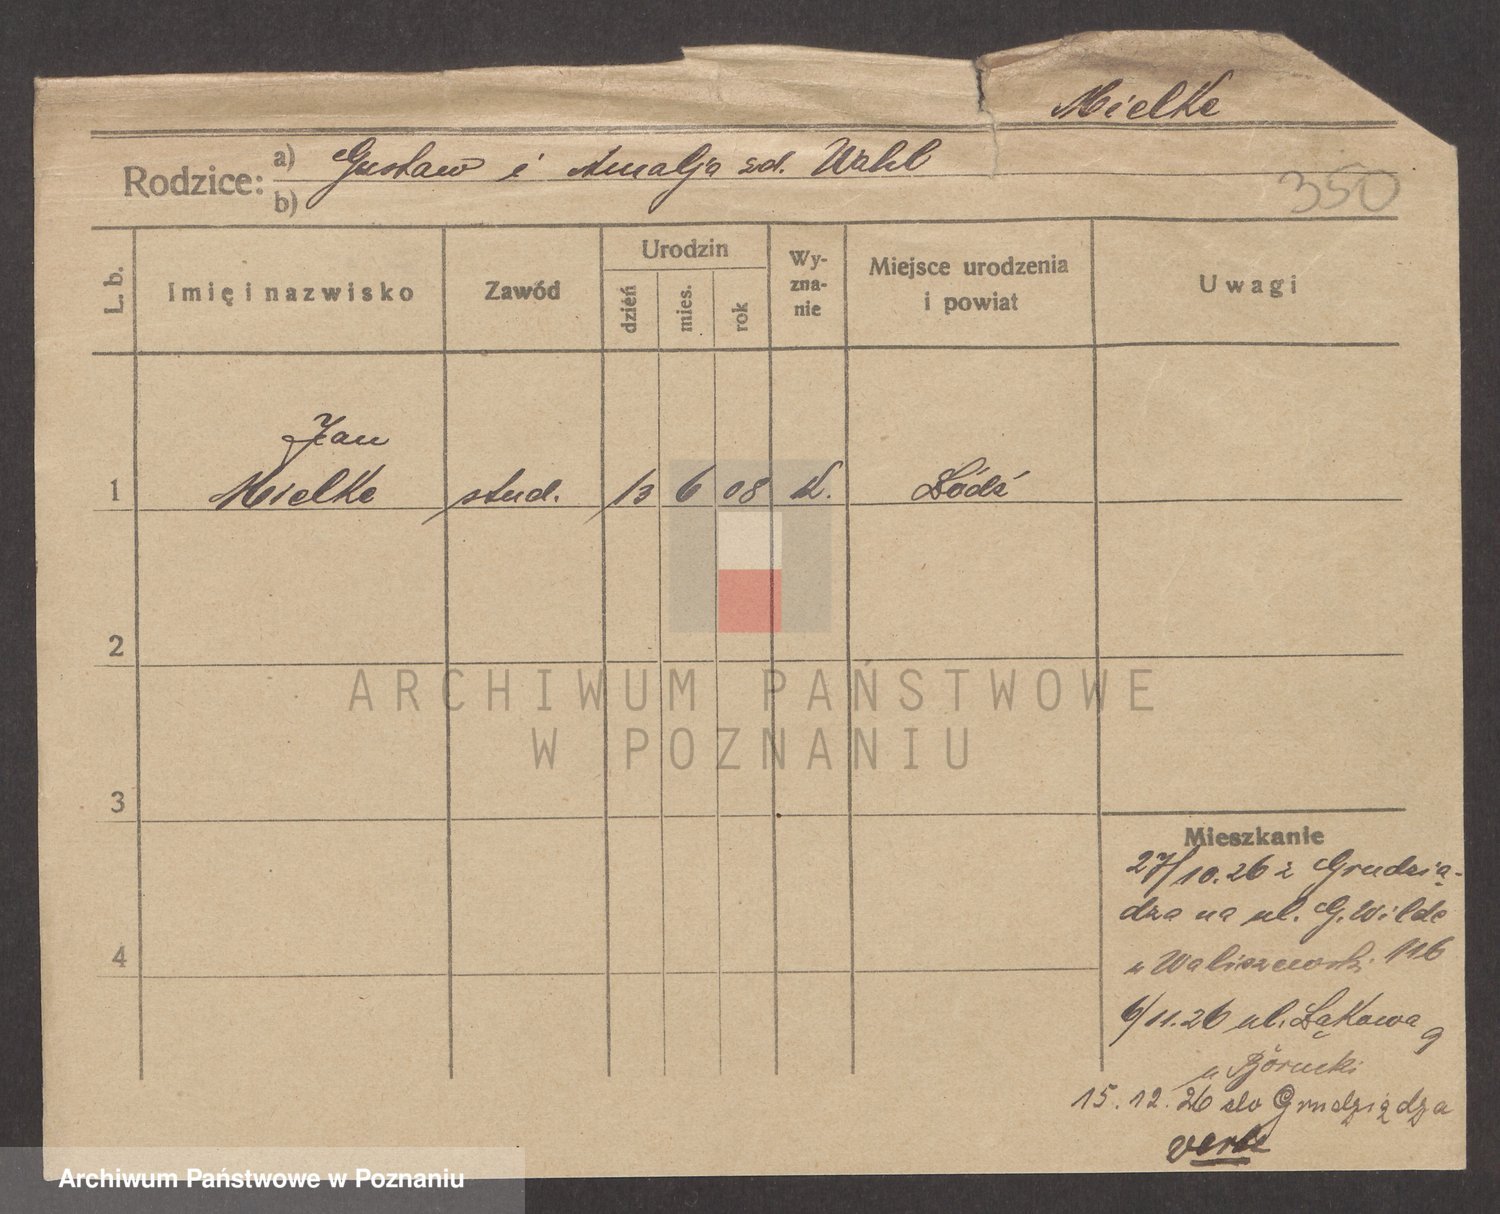 Mielke
Rodzice: a) Gustaw i Amalja zd. Wahl
b)
350
L. b.
Imię i nazwisko
Zawód
Urodzin
dzień
mies.
rok
Wy-
zna-
nie
Miejsce urodzenia
i powiat
Uwagi
Jan
1 Mielke stud. 13 6 08 k. Łódź
2
3
4
ARCHIWUM PAŃSTWOWE
W POZNANIU
Mieszkanie
27/10.26 z Grudzią-
dza na ul. G. Wilde
u Waliszewski. 116
6/11.26 ul. Łąkowa 9
u Borucki
15.12.26 do Grudziądza
verte
Archiwum Państwowe w Poznaniu